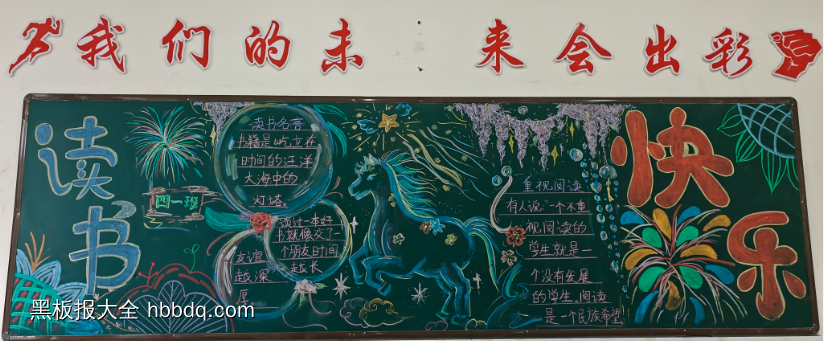 我们的未来会出彩
读书
四一班
读书名言
书籍是屹立在
时间的汪洋
大海中的
灯塔。
读过一本好
书就像交了一
个朋友时间
越长
友谊
越深
厚
重视阅读
有人说"一个不重
视阅读的
学生就是一
个没有发展
的学生,阅读
是一个民族希望
快乐
黑板报大全 hbbdq.com